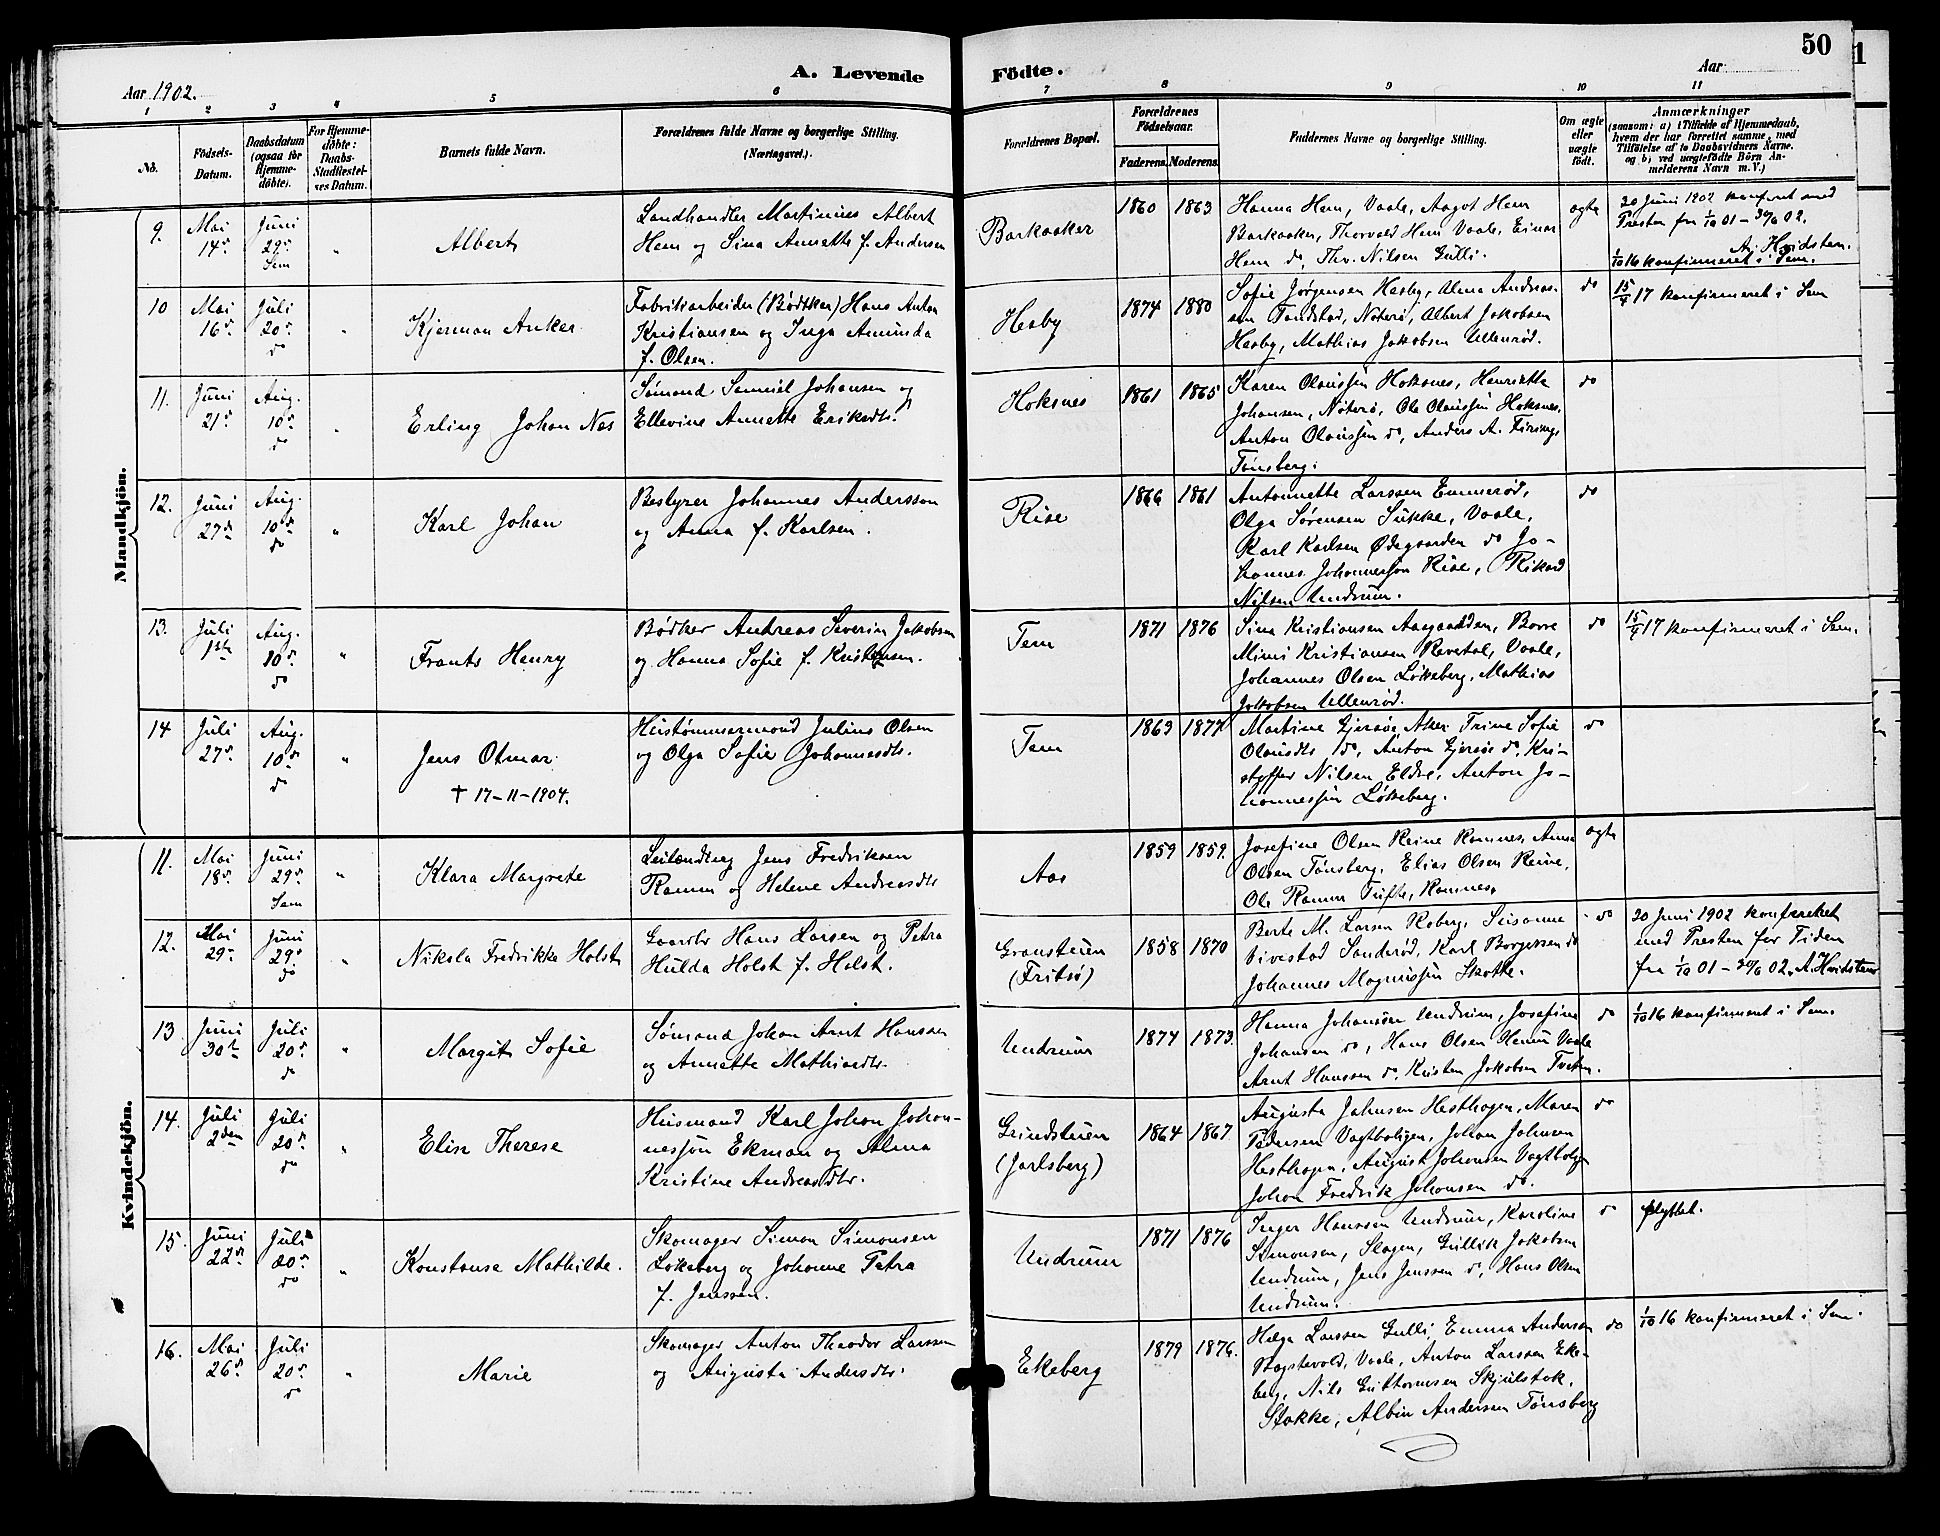 50
A. Levende Födte.
Aar 1902.
Aar
1 2 3 4 5 6 7 8 9 10 11
No.
Fødsels-Datum.
Daabsdatum (ogsaa for Hjemmedöbte).
For Hjemmedöbte: Daabs-Stadfæstelses Datum.
Barnets fulde Navn.
Forældrenes fulde Navne og borgerlige Stilling. (Næringsvei.)
Forældrenes Bopæl.
Forældrenes Födselsaar.
Faderens. Moderens.
Faddernes Navne og borgerlige Stilling.
Om ægte eller uægte födt.
Anmærkninger
(saasom: a) i Tilfælde af Hjemmedaab, hvem der har forrettet samme, med Tilföielse af to Daabsvidners Navne. og b) ved uægtefödte Börn Anmelderens Navn m. V.)
Mandkjön.
9. Mai 14de Juni 29de Sem " Albert
Landhandler Martinius Albert
Hem og Sina Annette f. Andersen
Barkaaker 1860 1863
Hanna Hem, Vaale, Aagot Hem
Barkaaker, Thorvald Hem Vaale, Einar
Hem do, Thv. Nilsen Gulli.
ægte
20 Juni 1902 konferet med
Presten fra 1/10 01 – 30/6 02.
A. Hvidsten.
1/10 16 konfirmeret i Sem.
10 Mai 16de Juli 20de do " Kjerman Anker
Fabrikarbeider (Bødtker) Hans Anton
Kristiansen og Inga Amunda
f. Olsen.
Hesby 1874 1880
Sofie Jørgensen Hesby, Alma Andreas-
sen Tandstad, Nøterø, Albert Jakobsen
Hesby, Mathias Jakobsen Ullenrød.
do
15/4 17 konfirmeret i Sem
11. Juni 21de Aug. 10de do " Erling Johan Næs
Sømand Samuel Johansen og
Ellevine Annette Eriksdtr.
Hoksnes 1861 1865
Karen Olaussen Hoksnes, Henrikke
Johansen, Nøterø, Ole Olaussen Hoksnes,
Anton Olaussen do, Anders A.
Tønsberg.
do
12. Juni 27de Aug. 10de do " Karl Johan
Bestyrer Johannes Andersson
og Anna f. Karlsen.
Rise 1866 1861
Antonnette Larssen Emmerød,
Olga Sørensen Sukke, Vaale,
Karl Karlsen Ødegaarden do Jo-
hannes Johannesson Rise, Rikard
Nilsen Undrum.
do
13. Juli 1ste Aug. 10de do " Frants Henry
Bødker Andreas Severin Jakobsen
og Hanna Sofie f. Kristensen.
Tem 1871 1876
Sina Kristiansen Borre
Mimi Kristiansen Revetal, Vaale,
Johannes Olsen Løkeberg, Mathias
Jakobsen Ullenrød.
do
15/4 17 konfirmeret i Sem.
14 Juli 27de Aug. 10de do " Jens Otmar
† 17-11-1904.
Hustømmermand Julius Olsen
og Olga Sofie Johannesdtr.
Tem 1863 1877
Martine Gjersøe Aker Trine Sofie
Olausdtr do, Anton Gjersøe do, Kri-
stoffer Nilsen Eldre, Anton Jo-
hannessen Løkeberg.
do
Kvindekjön.
11. Mai 18de Juni 29de Sem " Klara Margrete
Leilænding Jens Fredriksen
Ramm og Helene Andreasdtr
Aas 1859 1859.
Josefine Olsen Reine Ramnes, Anna
Olsen Tønsberg, Elias Olsen Reine,
Ole Ramm Tufte, Ramnes.
ægte
12. Mai 29de Juni 29de do " Nikola Fredrikke Holst
Gaardbr Hans Larsen og Petra
Hulda Holst f. Holst.
Granstuen
(Fritsø)
1858 1870
Berte M. Larsen Roberg, Susanne
Vivestad Sanderød, Karl Borgessen do
Johannes Magnussen Skotte.
do
20 Juni 1902 konfereret
med Presten for Tiden
fra 1/10 01 – 30/6 02. A. Hvidsten
13 Juni 30te Juli 20de do " Margit Sofie
Sømand Johan Arnt Hanssen
og Annette Mathiasdtr.
Undrum 1874 1873
Hanna Johansen Undrum, Josefine
Johansen do, Hans Olsen Hemu Vaale
Arnt Hanssen do, Kristen Jakobsen Tveten.
do
1/10 16 konfirmeret i Sem.
14. Juli 2den Juli 20de do " Elise Therese
Husmand Karl Johan Johan-
nesson Ekman og Alma
Kristine Andreasdtr.
Grindstuen
(Jarlsberg)
1864 1867
Augusta Johnsen Hesthagen, Maren
Pedersen Vagtboligen, Johan Johnsen
Hesthagen, August Johansen Vagtbolgn
Johan Fredrik Johansen do.
do
15. Juni 22de Juli 20de do " Konstanse Mathilde.
Skomager Simon Simonsen
Løkeberg og Johanne Petra
f. Jenssen.
Undrum 1871 1876
Inger Hanssen Undrum, Karoline
Simonsen, Slagen, Gullik Jakobsen
Undrum, Jens Jenssen do, Hans Olsen
Undrum.
do
flyttet.
16. Mai 26de Juli 20de do " Marie
Skomager Anton Theodor Larssen
og Augusta Andersdtr.
Ekeberg 1879 1876.
Helga Larssen Gulli, Emma Andersen
Vaale, Anton Larssen Eke-
berg, Nils Guttormsen Skjulstok,
Stokke, Albin Andersen Tønsberg
do
1/10 16 konfirmeret i Sem.